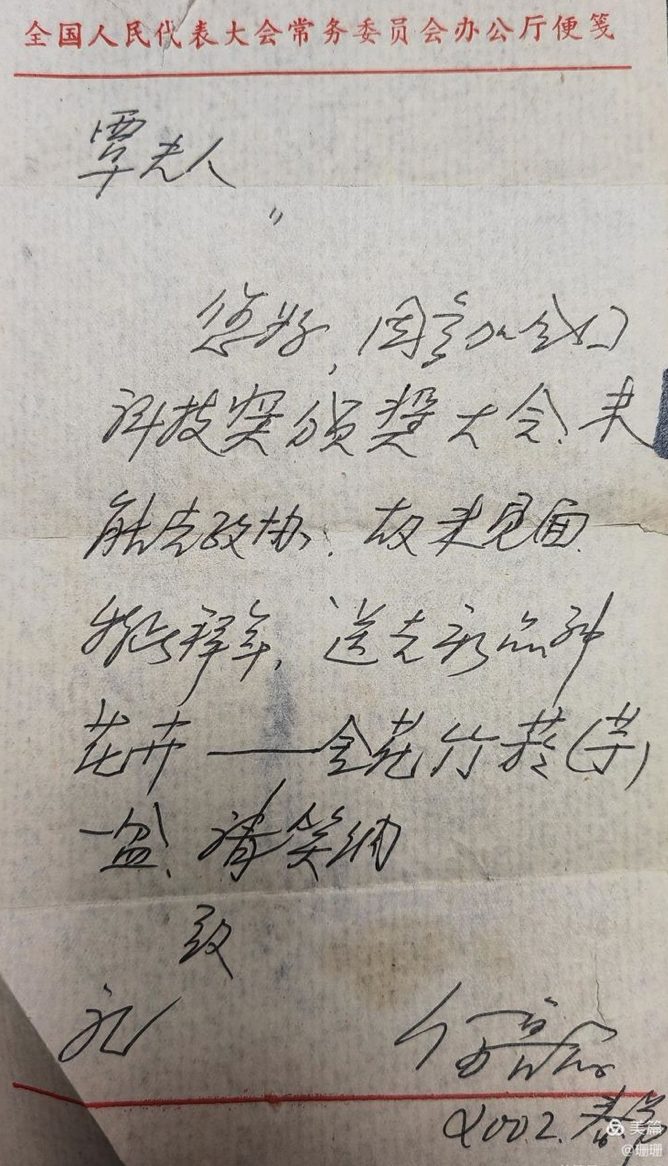 全国人民代表大会常务委员会办公厅便笺
覃夫人
您好，因参加全国
科技奖颁奖大会、未
能去政协、故未见面
拜年，送去新品种
花卉——金花竹芋
一盆、请笑纳
致
礼
2002.春节
美篇
@珊珊